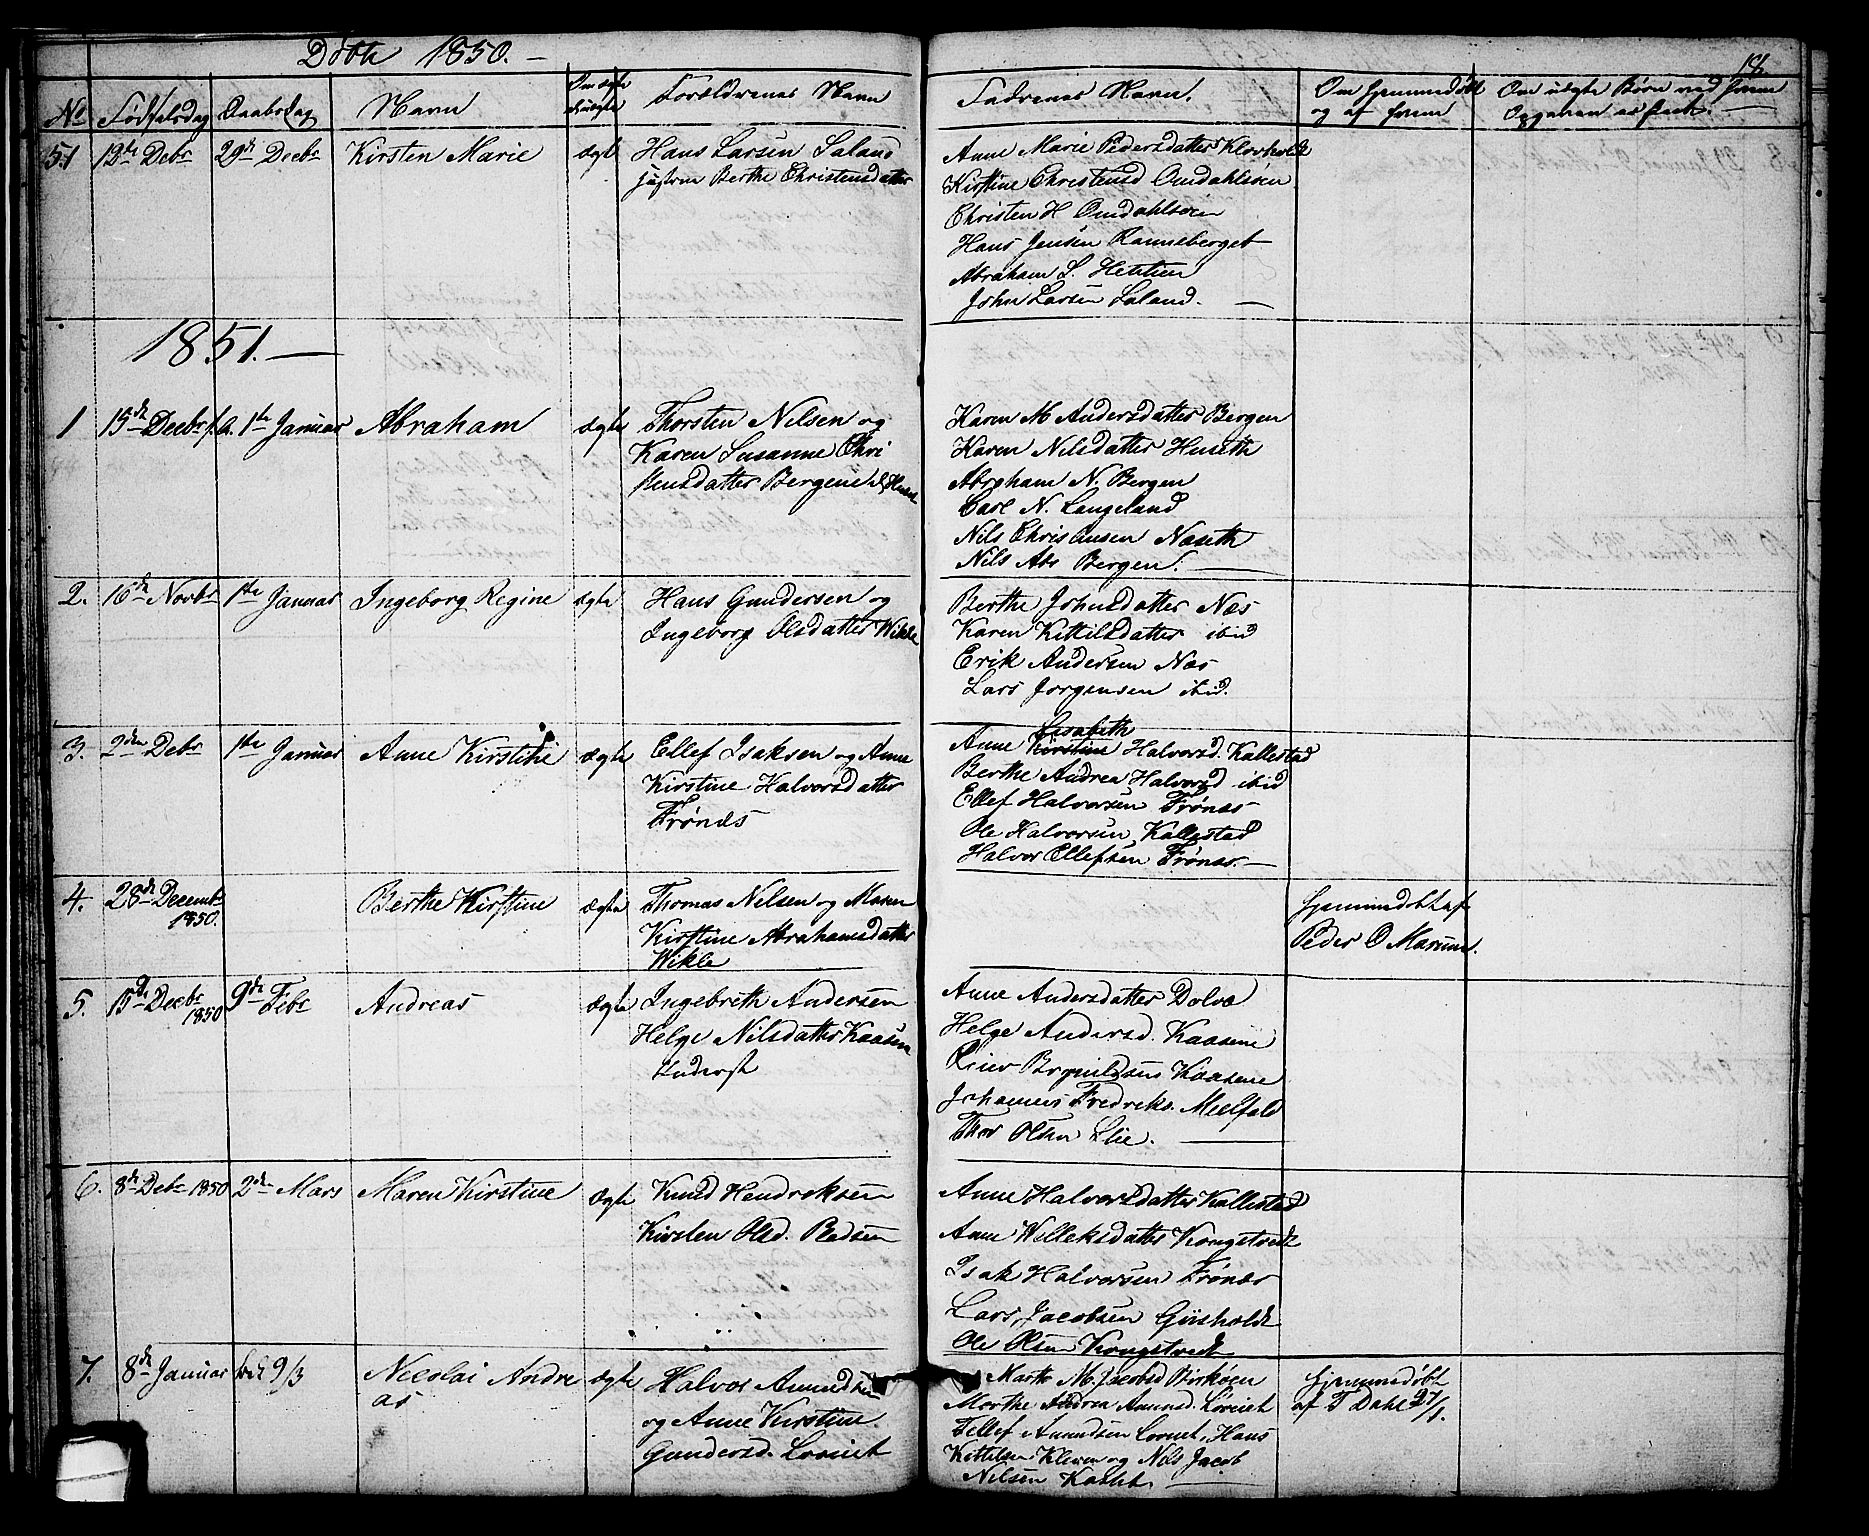 Døbte 1850. —
18.
No Fødselsdag Daabsdag Navn Om ægte Uægte Forældrenes Navn Faderenes Navn. Om Hjemmedøbt og af hvem
51 12te Debr 29de Decbr Kirsten Marie ægte Hans Larsen Saland
Hustru Berthe Christensdatter
Anne Marie Pedersdatter Klovholdt
Kirstine Christensd Omdahlsøen
Christen H Omdahlsøen
Hans Jensen Ranneberget
Abraham L.
John Larsen Saland. —
1851. —
1 15de Decbr f.A. 1te Januar Abraham ægte Thorsten Nilsen og
Karen Susanne Chri
stensdatter Bergene
Karen M Andersdatter Bergen
Karen Nilsdatter Huseth
Abraham N. Bergen
Carl N. Langeland
Nils Christensen Naseth
Nils Abr Bergen. —
2. 16de Novbr 1te Januar Ingeborg Regine ægte Hans Gundersen og
Ingeborg Olsdatter Wikle
Berthe Johnsdatter Næs
Karen Kittilsdatter ibid
Erik Andersen Næs
Lars Jørgensen ibid.
3. 2den Debr 1te Januar Anne Kirstine ægte Ellef Isaksen og Anne
Kirstine Halvorsdatter
Frönæs
Lisabeth
Anne Kirstine Halvorsd. Kallestad
Berthe Andrea Halvorsd ibid
Ellef Halvorsen Frönæs
Ole Halvorsen Kallestad
Halvor Ellefsen Frönæs. —
4. 28de Decembr 1850. Berthe Kirstine ægte Thomas Nilsen og Maren
Kirstine Abrahamsdatter
Wikle
Hjemmedöbt af
Peder O
5. 15de Decbr 1850 9de Febr Andreas ægte Ingebreth Andersen
Helge Nilsdatter Kaasene
Anne Andersdatter Dolva
Helge Andersd. Kaasene
Kaasene
Johannes Fredriks.
Thor Olsen Lie. —
6. 8de Debr 1850 2den Mars Maren Kirstine ægte Knud Hendriksen
Kirsten Olsd.
Anne Halvorsdatter Kallestad
Anne Willeksdatter Kongstvedt
Isak Halvorsen Frönæs
Lars Jacobsen Grisholdt
Ole Olsen Kongstvedt
7. 8de Januar 9/3 Nicolai Andre
as ægte Halvor Amundsen
og Anne Kirstine
Gundersd. Loviet
Marthe M. Jacobsd Birkøen
Marthe Andrea Amunsd. Loviet
Tellef Amundsen Loviet, Hans
Kittilsen Kleven og Nils Jacob
Nilsen
Hjemmedöbt
af T Dahl 27/1.